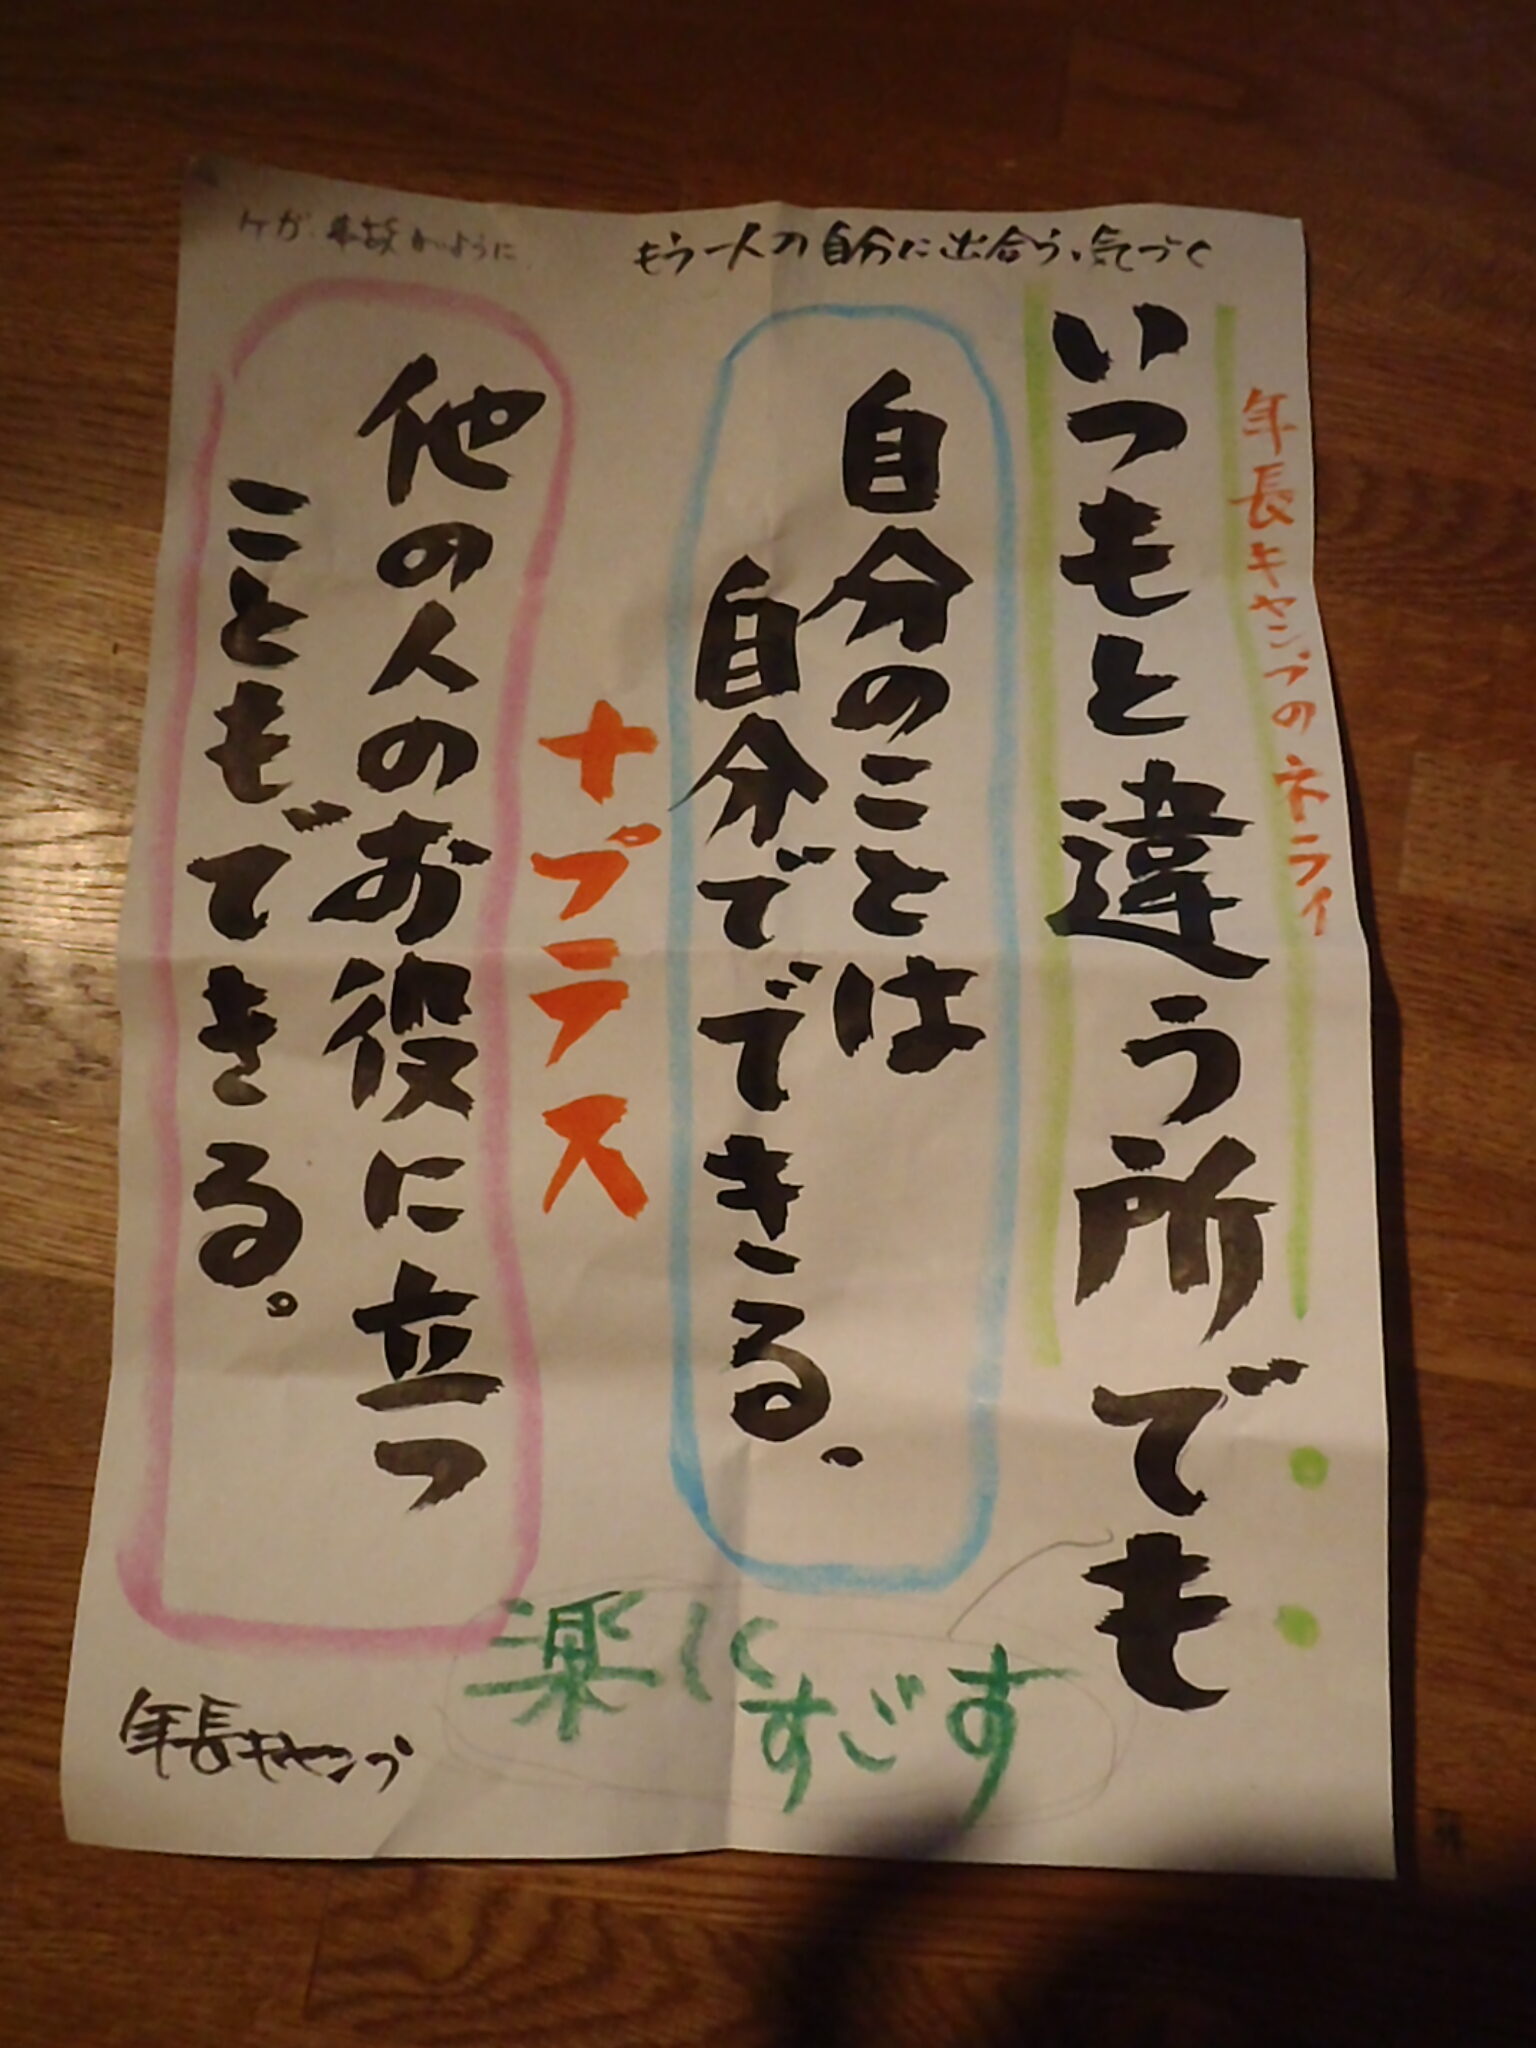 もう一人の自分に出合う、気づく
年長キャンプのネライ
いつもと違う所でも
自分のことは
自分でできる。
+プラス
他の人のお役に立つ
こともできる。
楽しく
すごす
年長キャンプ